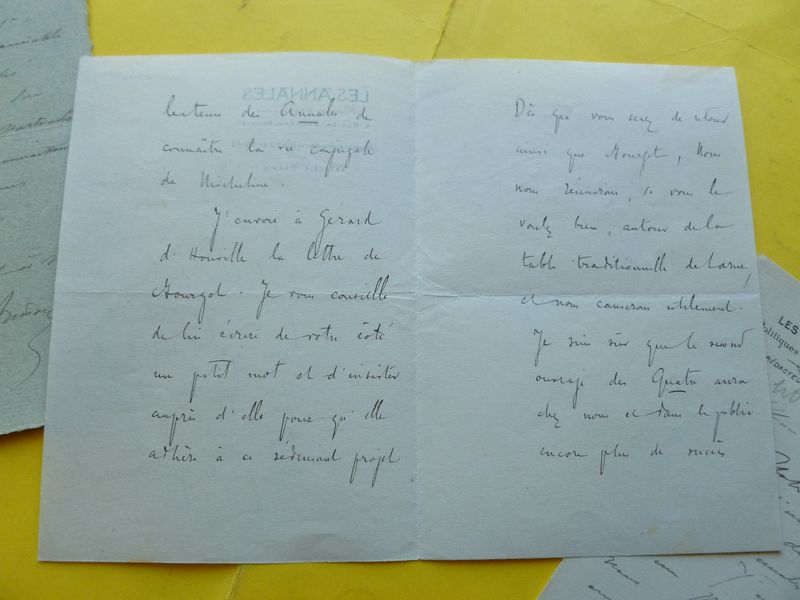 lecteurs des Annales de
connaître la vie conjugale
de Micheline.
J'envoie à Gérard
d'Houville la lettre de
Bourget. Je vous conseille
de lui écrire de votre côté
un petit mot et d'insister
auprès d'elle pour qu'elle
adhère à ce séduisant projet.
Dès que vous serez de retour
ainsi que Bourget, nous
nous réunirons, si vous le
voulez bien, autour de la
table traditionnelle de Larue,
et nous causerons utilement.
Je suis sûr que le second
ouvrage des Quatre aura
chez nous et dans le public
encore plus de succès
LES ANNALES
LES
Politiques
RÉDACTE